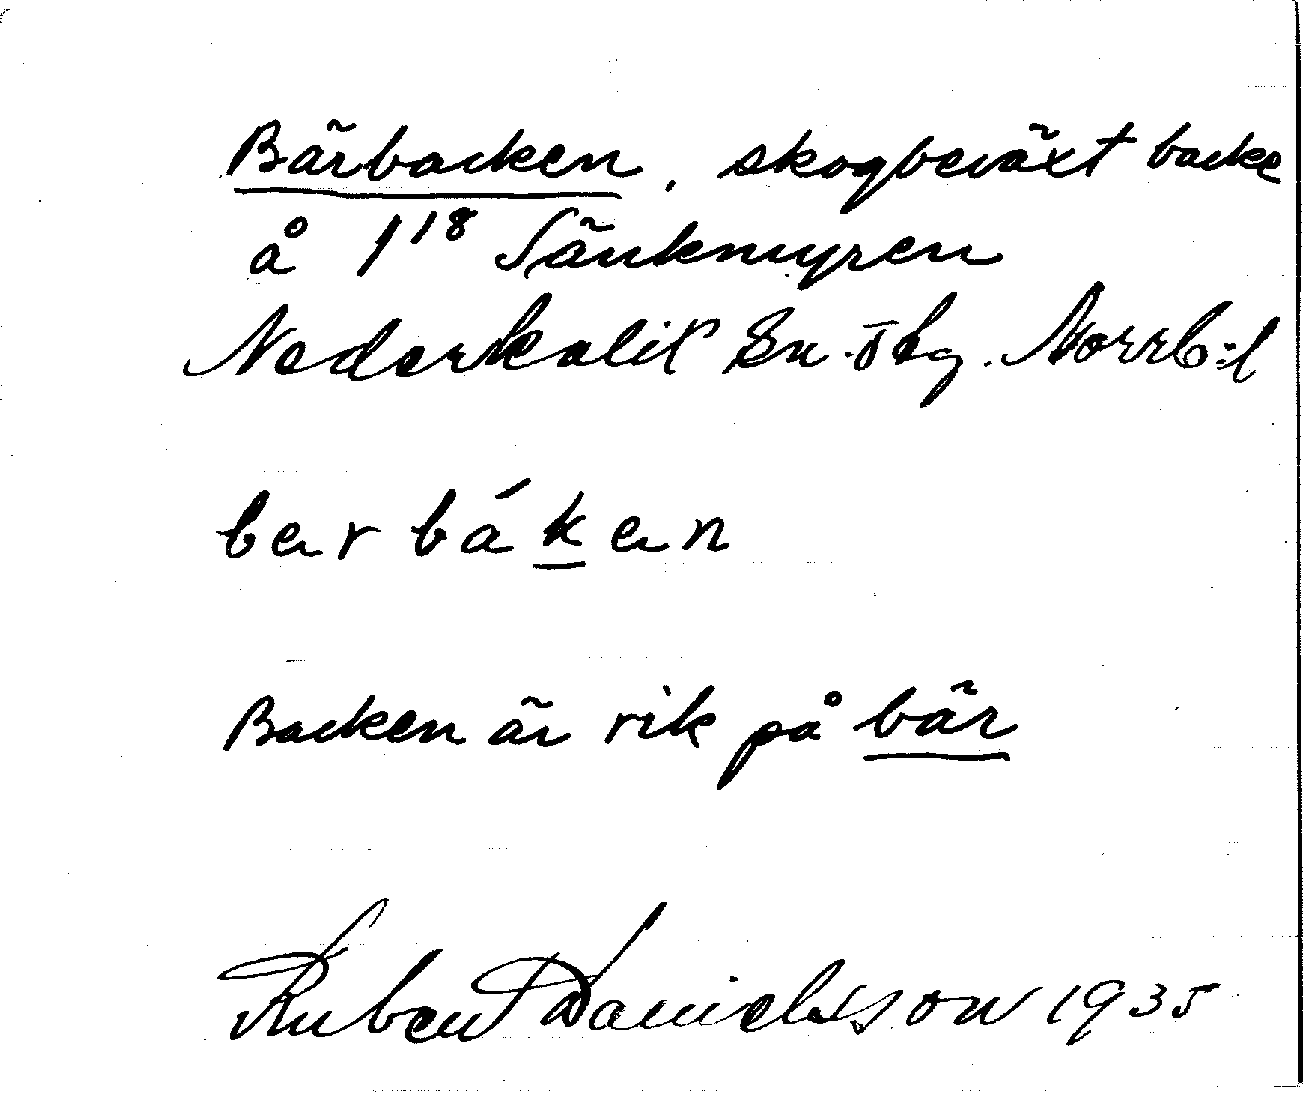 Bärbacken, skogbeväxt backe
å 1¹⁸ Sänkmyren
Nederkalix Sn. Norrb:l
berbáken
Backen är rik på bär
Ruben Danielsson 1935